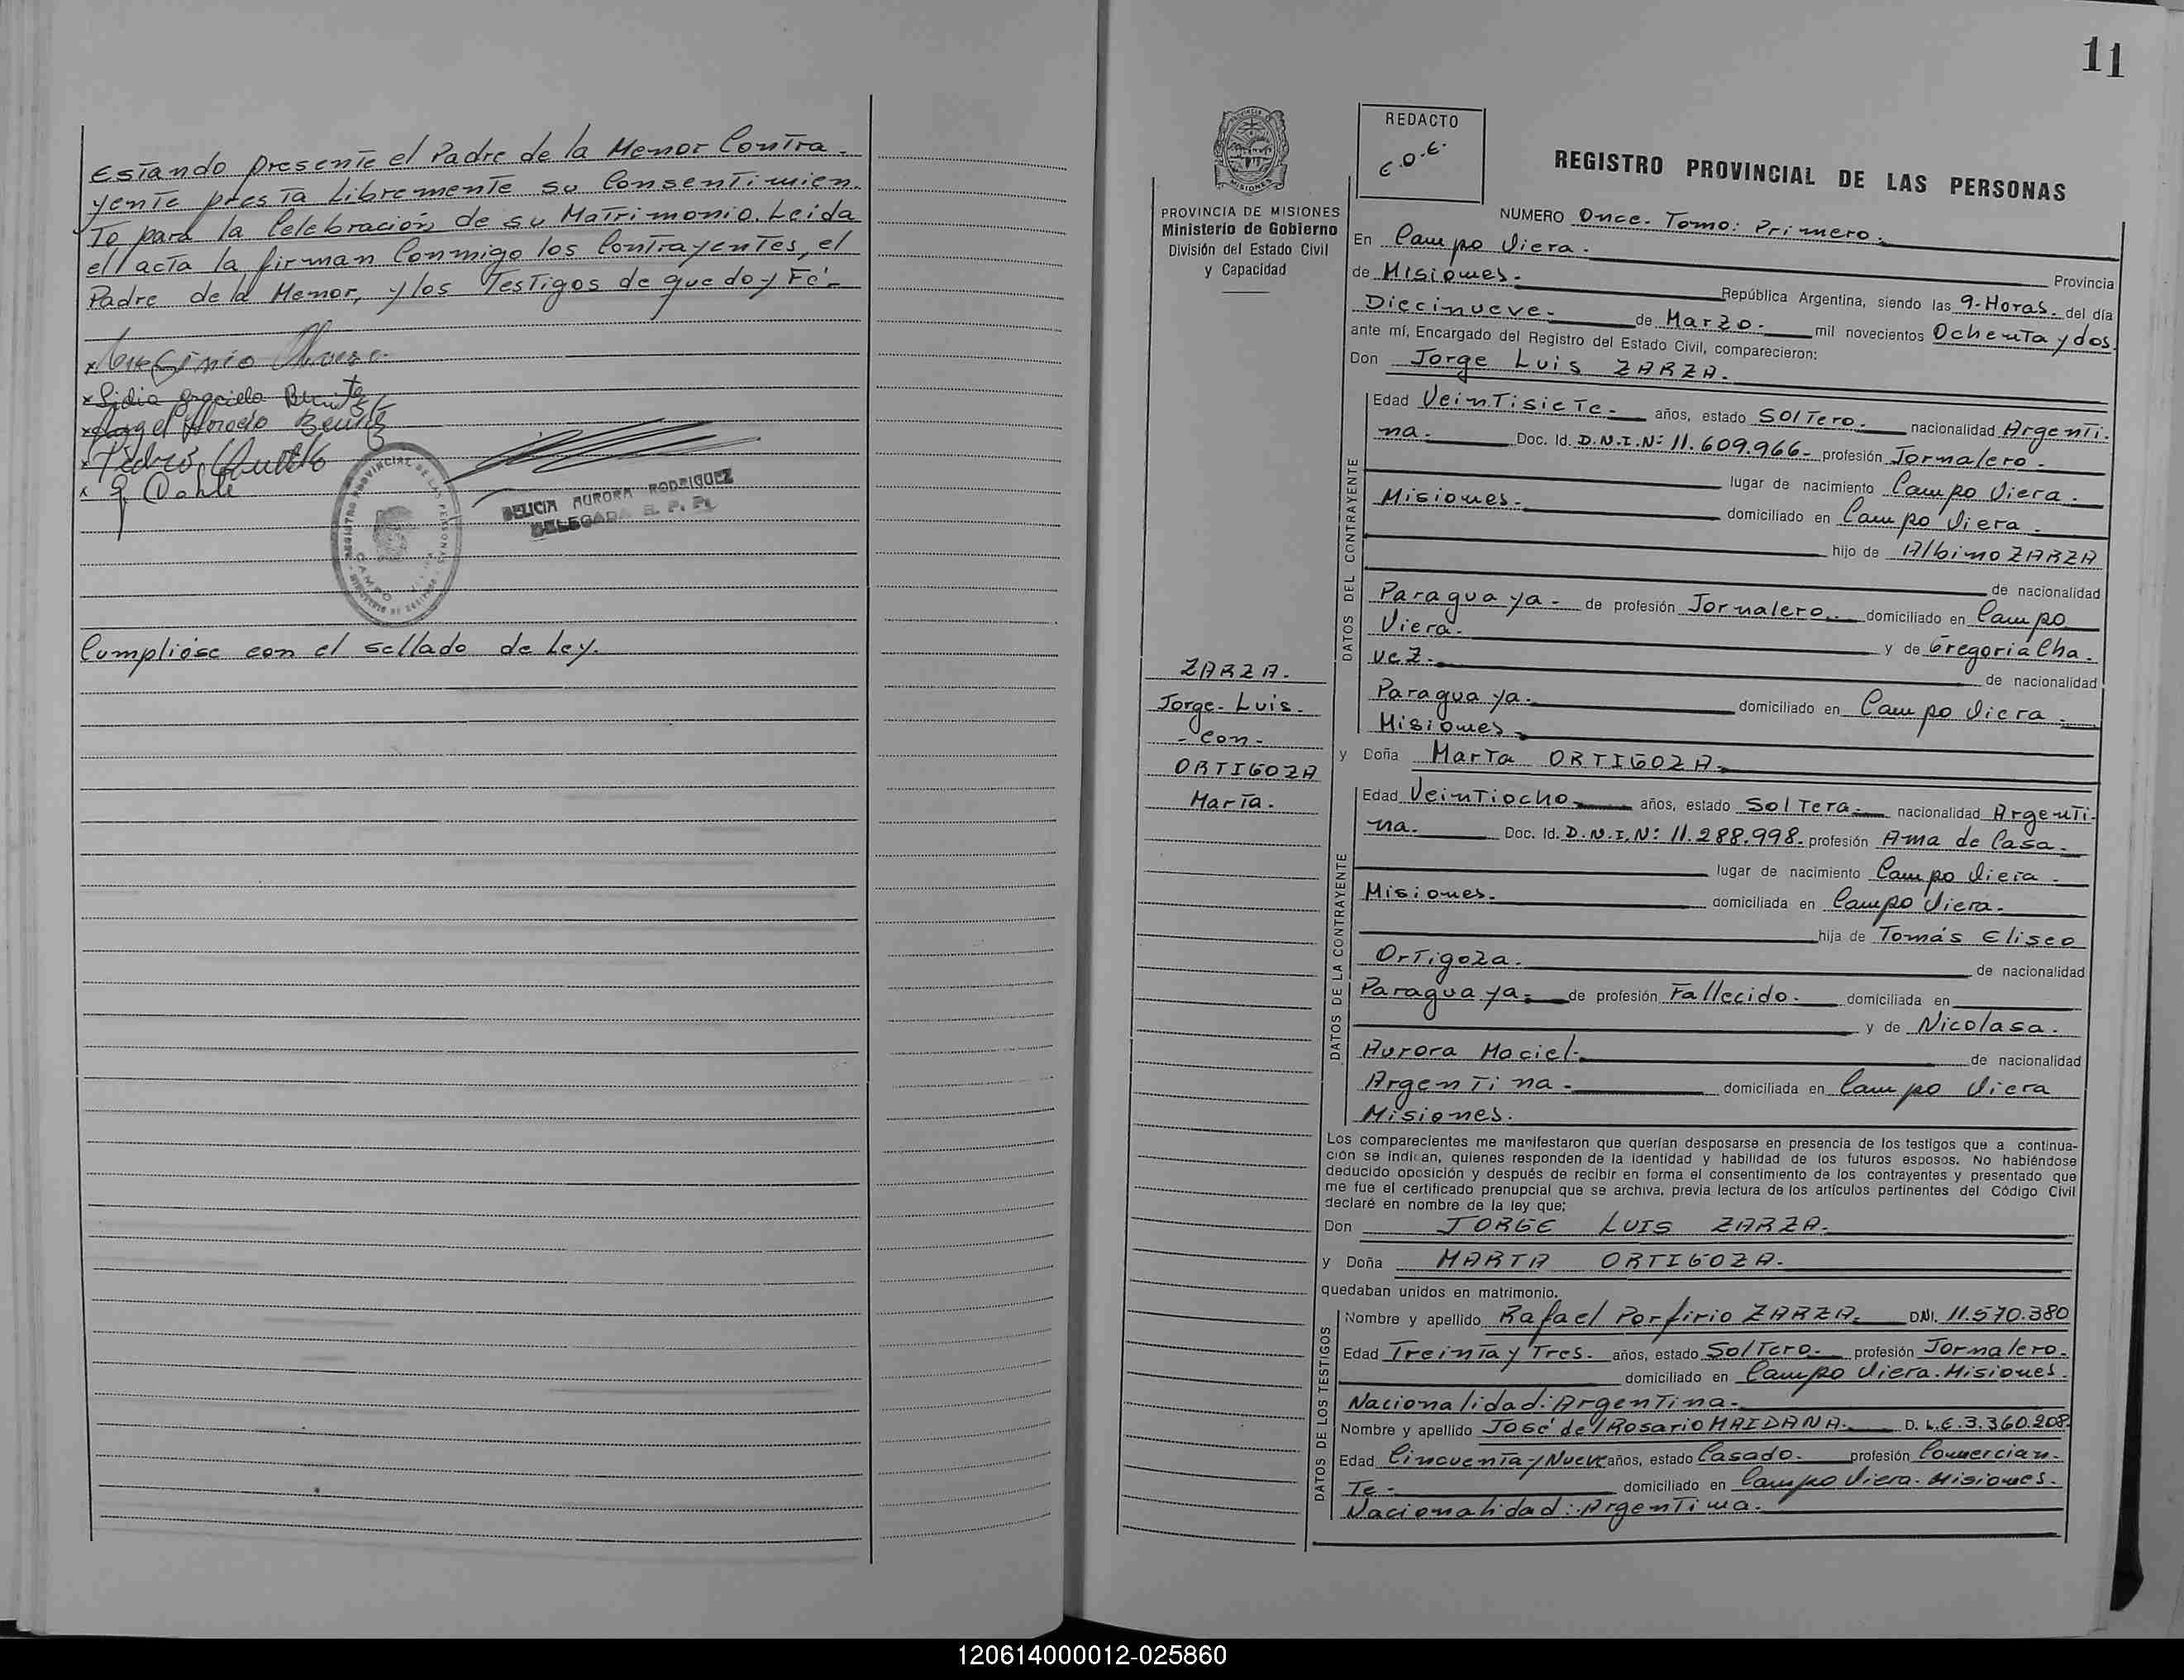 Estando presente el Padre de la Menor Contra-
yente presta Libremente su Consentimien-
To para la Celebración de su Matrimonio. Leida
el acta la firman Conmigo los Contrayentes, el
Padre de la Menor, y los Testigos de que doy Fé.
x Lidia Graciela Benitez
BELICIA AURORA RODRIGUEZ
DELEGADA R. P. P.
Cumpliose con el sellado de Ley.
11
PROVINCIA DE MISIONES
Ministerio de Gobierno
División del Estado Civil
y Capacidad
ZARZA.
Jorge-Luis.
- Con -
ORTIGOZA
Marta.
REDACTO
C.O.E.
REGISTRO PROVINCIAL DE LAS PERSONAS
NUMERO Once. Tomo: Primero.
En Campo Viera. Provincia
de Misiones. República Argentina, siendo las 9-Horas. del día
Diecinueve- de Marzo. mil novecientos Ochenta y dos
ante mí, Encargado del Registro del Estado Civil, comparecieron:
Don Jorge Luis ZARZA.
DATOS DEL CONTRAYENTE
Edad Veintisiete- años, estado Soltero. nacionalidad Argenti-
na. Doc. Id. D.N.I.N: 11.609.966- profesión Jornalero.
lugar de nacimiento Campo Viera.
Misiones. domiciliado en Campo Viera.
hijo de Albino ZARZA
de nacionalidad
Paraguaya- de profesión Jornalero. domiciliado en Campo
Viera. y de Gregoria Cha-
vez. de nacionalidad
Paraguaya. domiciliado en Campo Viera.
Misiones
y Doña Marta ORTIGOZA.
DATOS DE LA CONTRAYENTE
Edad Veintiocho años, estado Soltera. nacionalidad Argenti-
na. Doc. Id. D.N.I.N: 11.288.998. profesión Ama de Casa.
lugar de nacimiento Campo Viera.
Misiones. domiciliada en Campo Viera.
hija de Tomás Eliseo
Ortigoza. de nacionalidad
Paraguaya. de profesión Fallecido. domiciliada en
y de Nicolasa.
Aurora Maciel. de nacionalidad
Argentina. domiciliada en Campo Viera
Misiones.
Los comparecientes me manifestaron que querían desposarse en presencia de los testigos que a continua-
ción se indican, quienes responden de la identidad y habilidad de los futuros esposos. No habiéndose
deducido oposición y después de recibir en forma el consentimiento de los contrayentes y presentado que
me fue el certificado prenupcial que se archiva, previa lectura de los artículos pertinentes del Código Civil
declaré en nombre de la ley que:
Don JORGE LUIS ZARZA.
y Doña MARTA ORTIGOZA.
quedaban unidos en matrimonio.
DATOS DE LOS TESTIGOS
Nombre y apellido Rafael Porfirio ZARZA. DNI. 11.570.380
Edad Treinta y Tres. años, estado Soltero. profesión Jornalero.
domiciliado en Campo Viera. Misiones.
Nacionalidad: Argentina.
Nombre y apellido José del Rosario MAIDANA. D. L.E. 3.360.208
Edad Cincuenta y Nueve años, estado Casado. profesión Comercian-
Te- domiciliado en Campo Viera. Misiones.
Nacionalidad: Argentina.
120614000012-025860